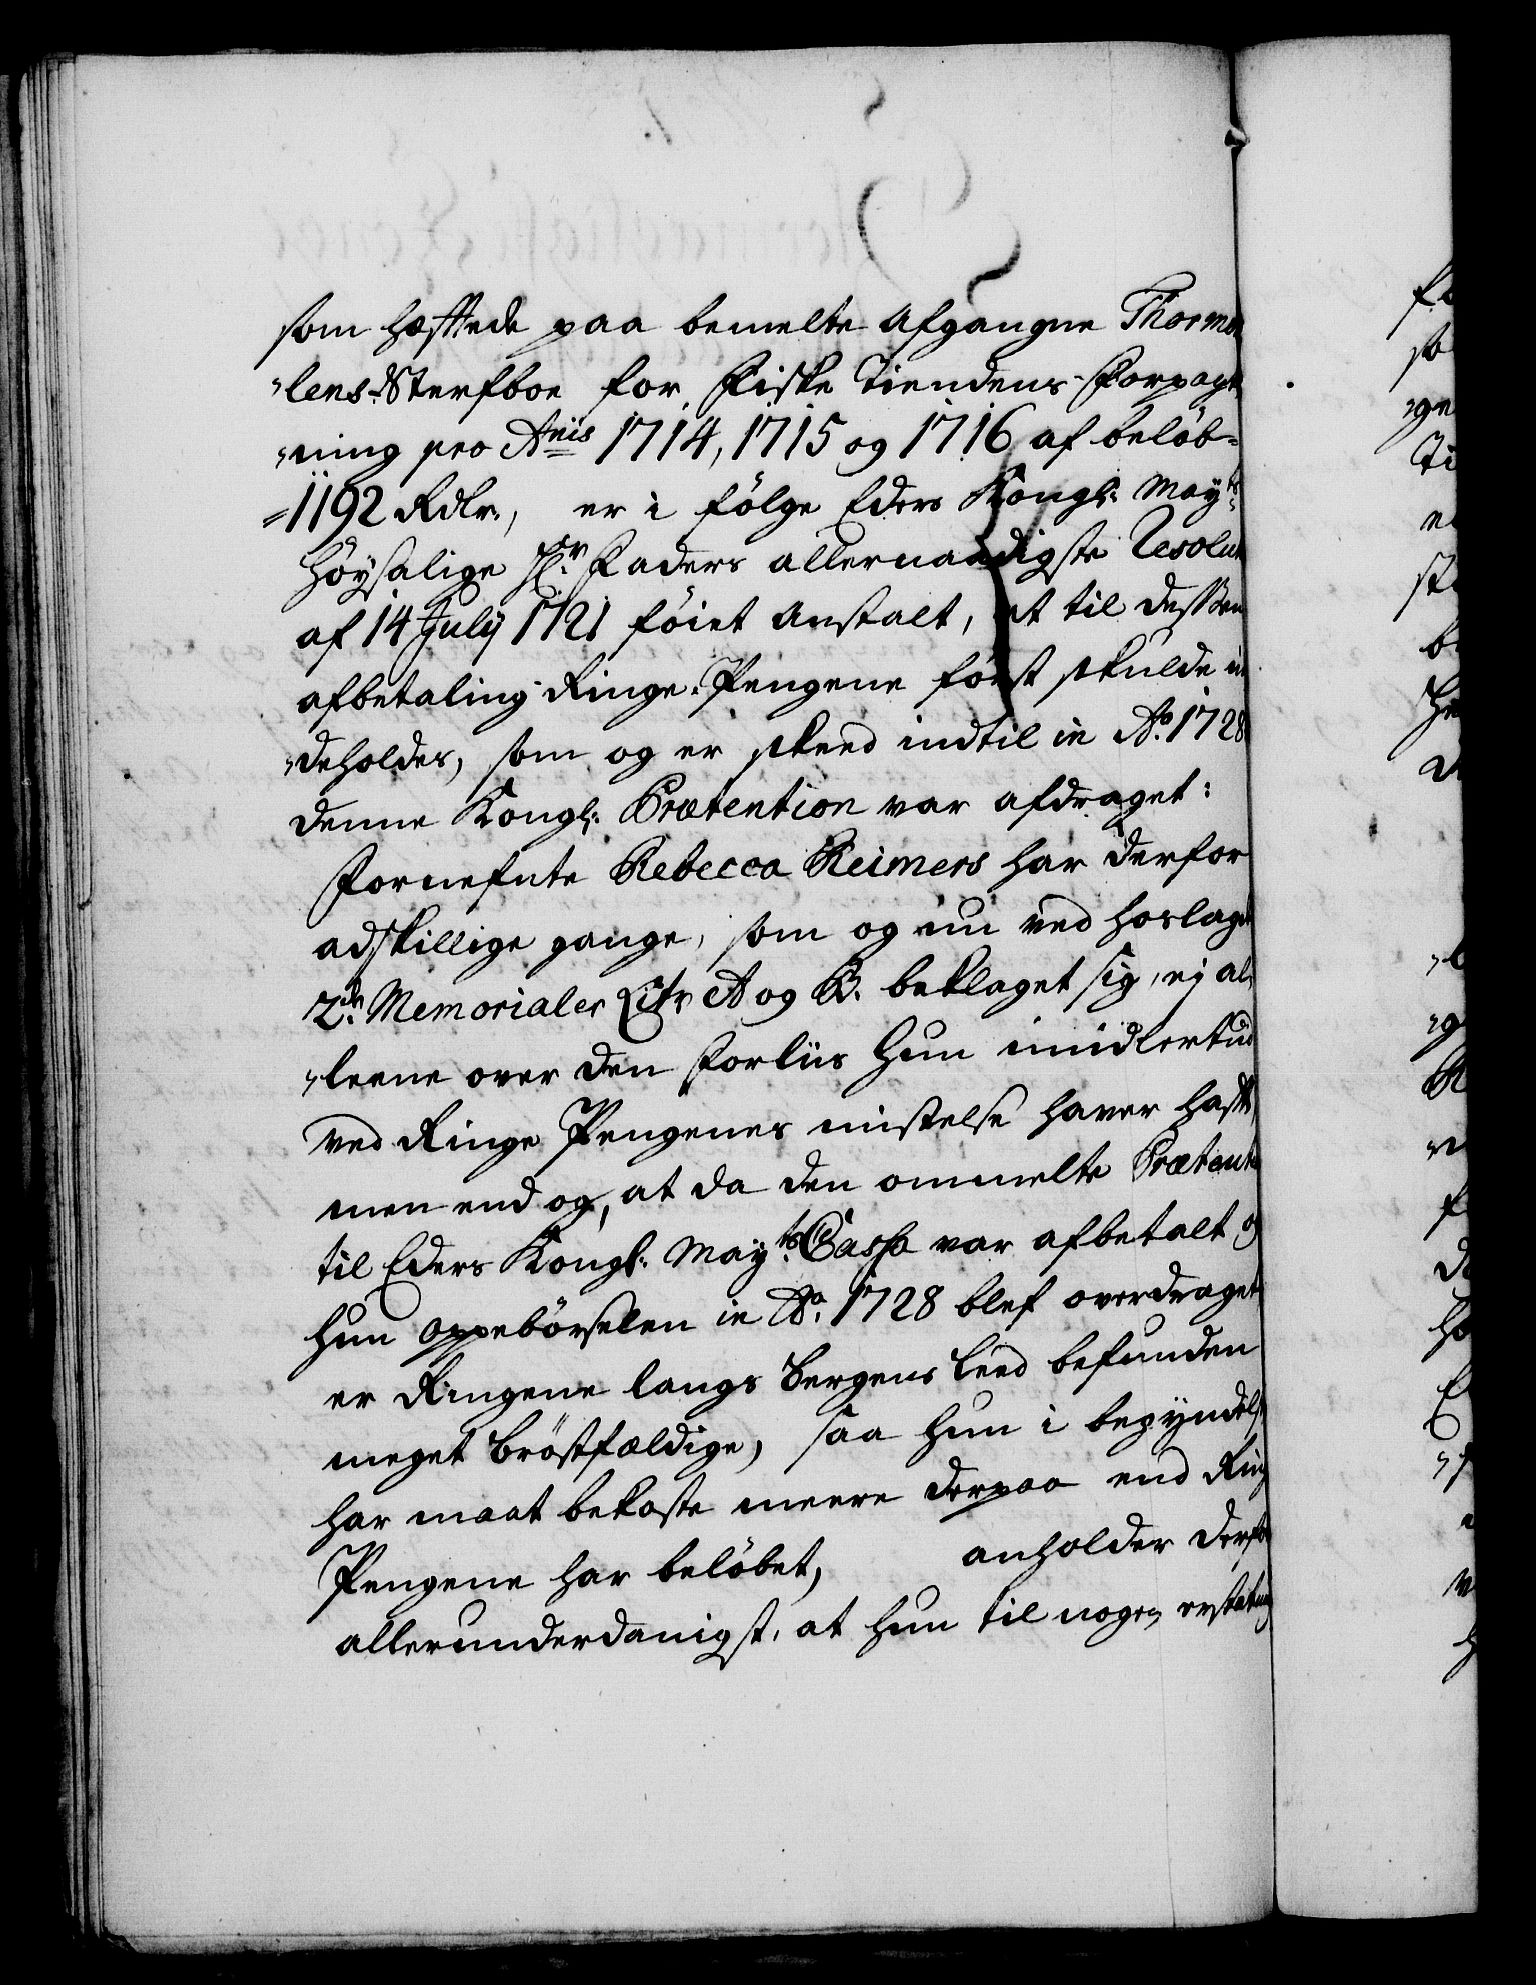 som hæfftede paa bemelte Afgangne Thormø
„lens-Sterfboe for Fiske Tiendens-Forpagt
„ning pro Aniis 1714, 1715 og 1716 af beløb-
„1192 Rdlr., er i følge Eders Kongl: Mayts:
Höysalige Hr. Faders allernaadigste Resolut
af 14 July 1721 föiet Anstalt, at til dessen
afbetaling Ringe-Pengene först skulde in
„deholdes, som og er skeed indtil in Ao. 1728
denne Kongl: Prætention var afdraget:
Fornefnte Rebecca Reimers har derfor
adskillige gange, som og nu ved hoslagt
2de Memorialer Litr A og B. beklaget sig, ej al
„leene over den Forliis hun imidlertiid
ved Ringe Pengenes mistelse haver hafft,
men end og, at da den ommelte Prætent
til Eders Kongl: Mayts: Cassa var afbetalt og
hun oppebörselen in Ao. 1728 blef overdraget
er Ringene langs Bergens Leed befunden
meget Bröstfældige, saa hun i begyndels
har maat bekoste meere derpaa end Ring
Pengene har belöbet, anholder derfor
allerunderdanigst, at hun til nogen erstatning